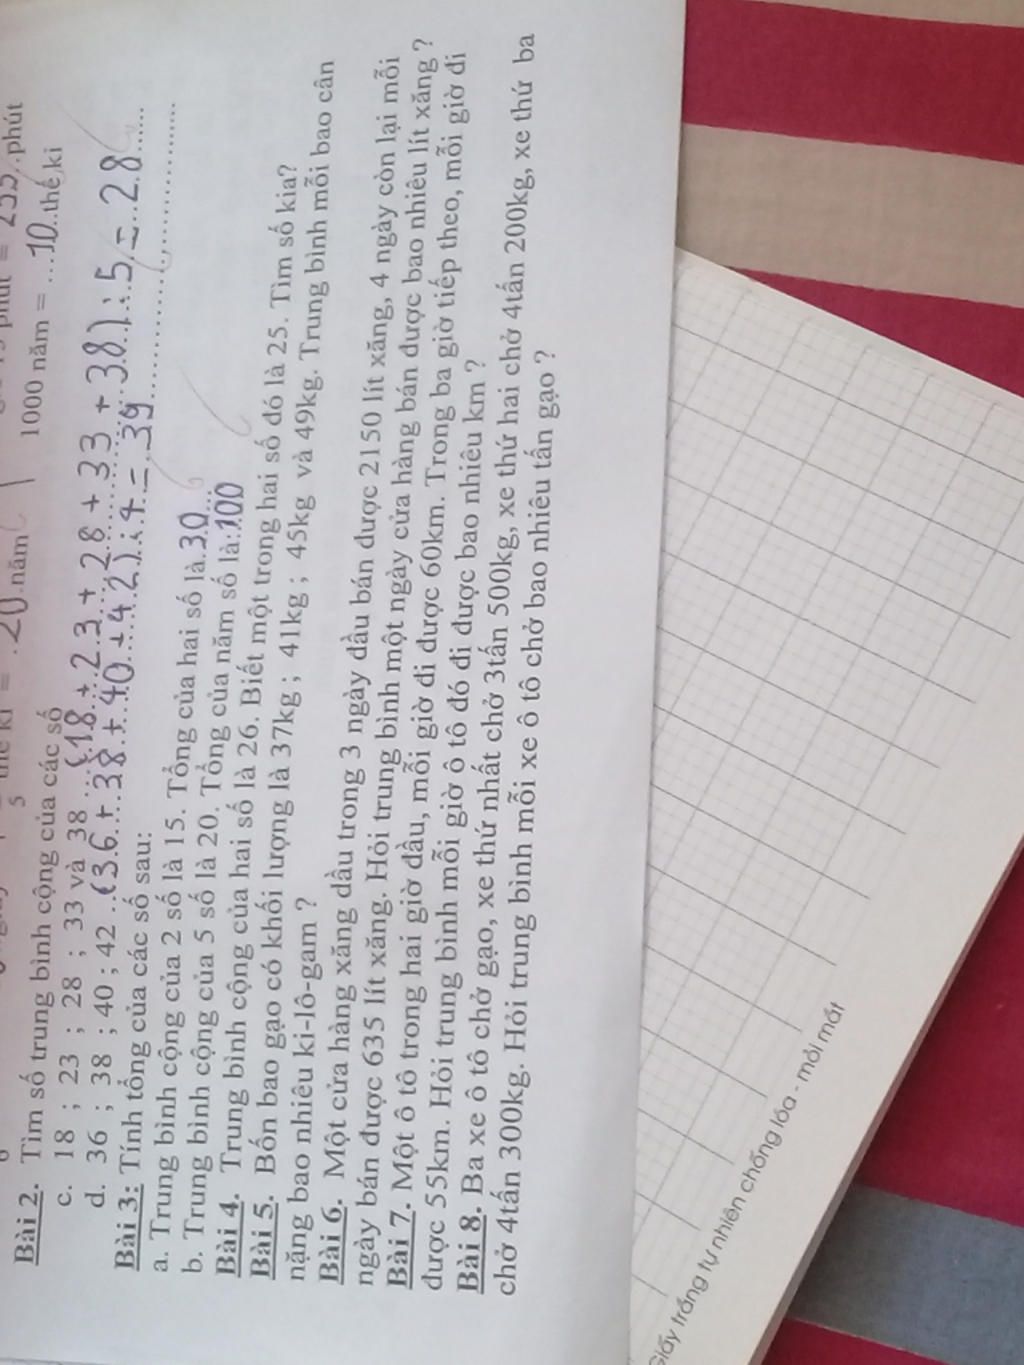 5
20 năm
1000 năm = ...10..thế kỉ
phút
Bài 2. Tìm số trung bình cộng của các số
c. 18 ; 23 ; 28 ; 33 và 38 ...(18 + 23 + 28 + 33 + 38) : 5 = 28
d. 36 ; 38 ; 40 ; 42 ..(36 + 38 + 40 + 42) : 4 = 39
Bài 3: Tính tổng của các số sau:
a. Trung bình cộng của 2 số là 15. Tổng của hai số là.30...
b. Trung bình cộng của 5 số là 20. Tổng của năm số là:.100
Bài 4. Trung bình cộng của hai số là 26. Biết một trong hai số đó là 25. Tìm số kia?
Bài 5. Bốn bao gạo có khối lượng là 37kg ; 41kg ; 45kg và 49kg. Trung bình mỗi bao cân
nặng bao nhiêu ki-lô-gam ?
Bài 6. Một cửa hàng xăng dầu trong 3 ngày đầu bán được 2150 lít xăng, 4 ngày còn lại mỗi
ngày bán được 635 lít xăng. Hỏi trung bình một ngày cửa hàng bán được bao nhiêu lít xăng ?
Bài 7. Một ô tô trong hai giờ đầu, mỗi giờ đi được 60km. Trong ba giờ tiếp theo, mỗi giờ đi
được 55km. Hỏi trung bình mỗi giờ ô tô đó đi được bao nhiêu km ?
Bài 8. Ba xe ô tô chở gạo, xe thứ nhất chở 3tấn 500kg, xe thứ hai chở 4tấn 200kg, xe thứ ba
chở 4tấn 300kg. Hỏi trung bình mỗi xe ô tô chở bao nhiêu tấn gạo ?
Giấy trắng tự nhiên chống lóa - mỏi mắt